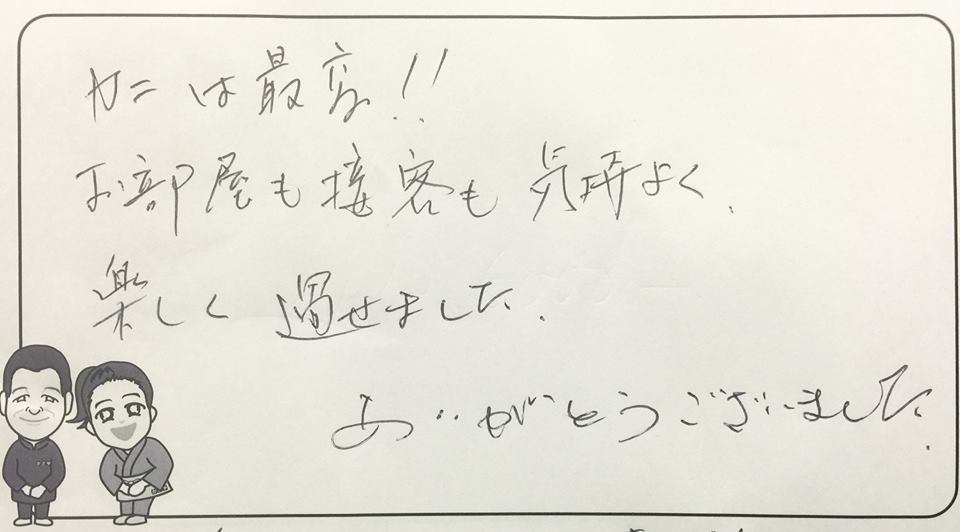 カニは最高!!
お部屋も接客も気持よく.
楽しく過せました.
ありがとうございました.